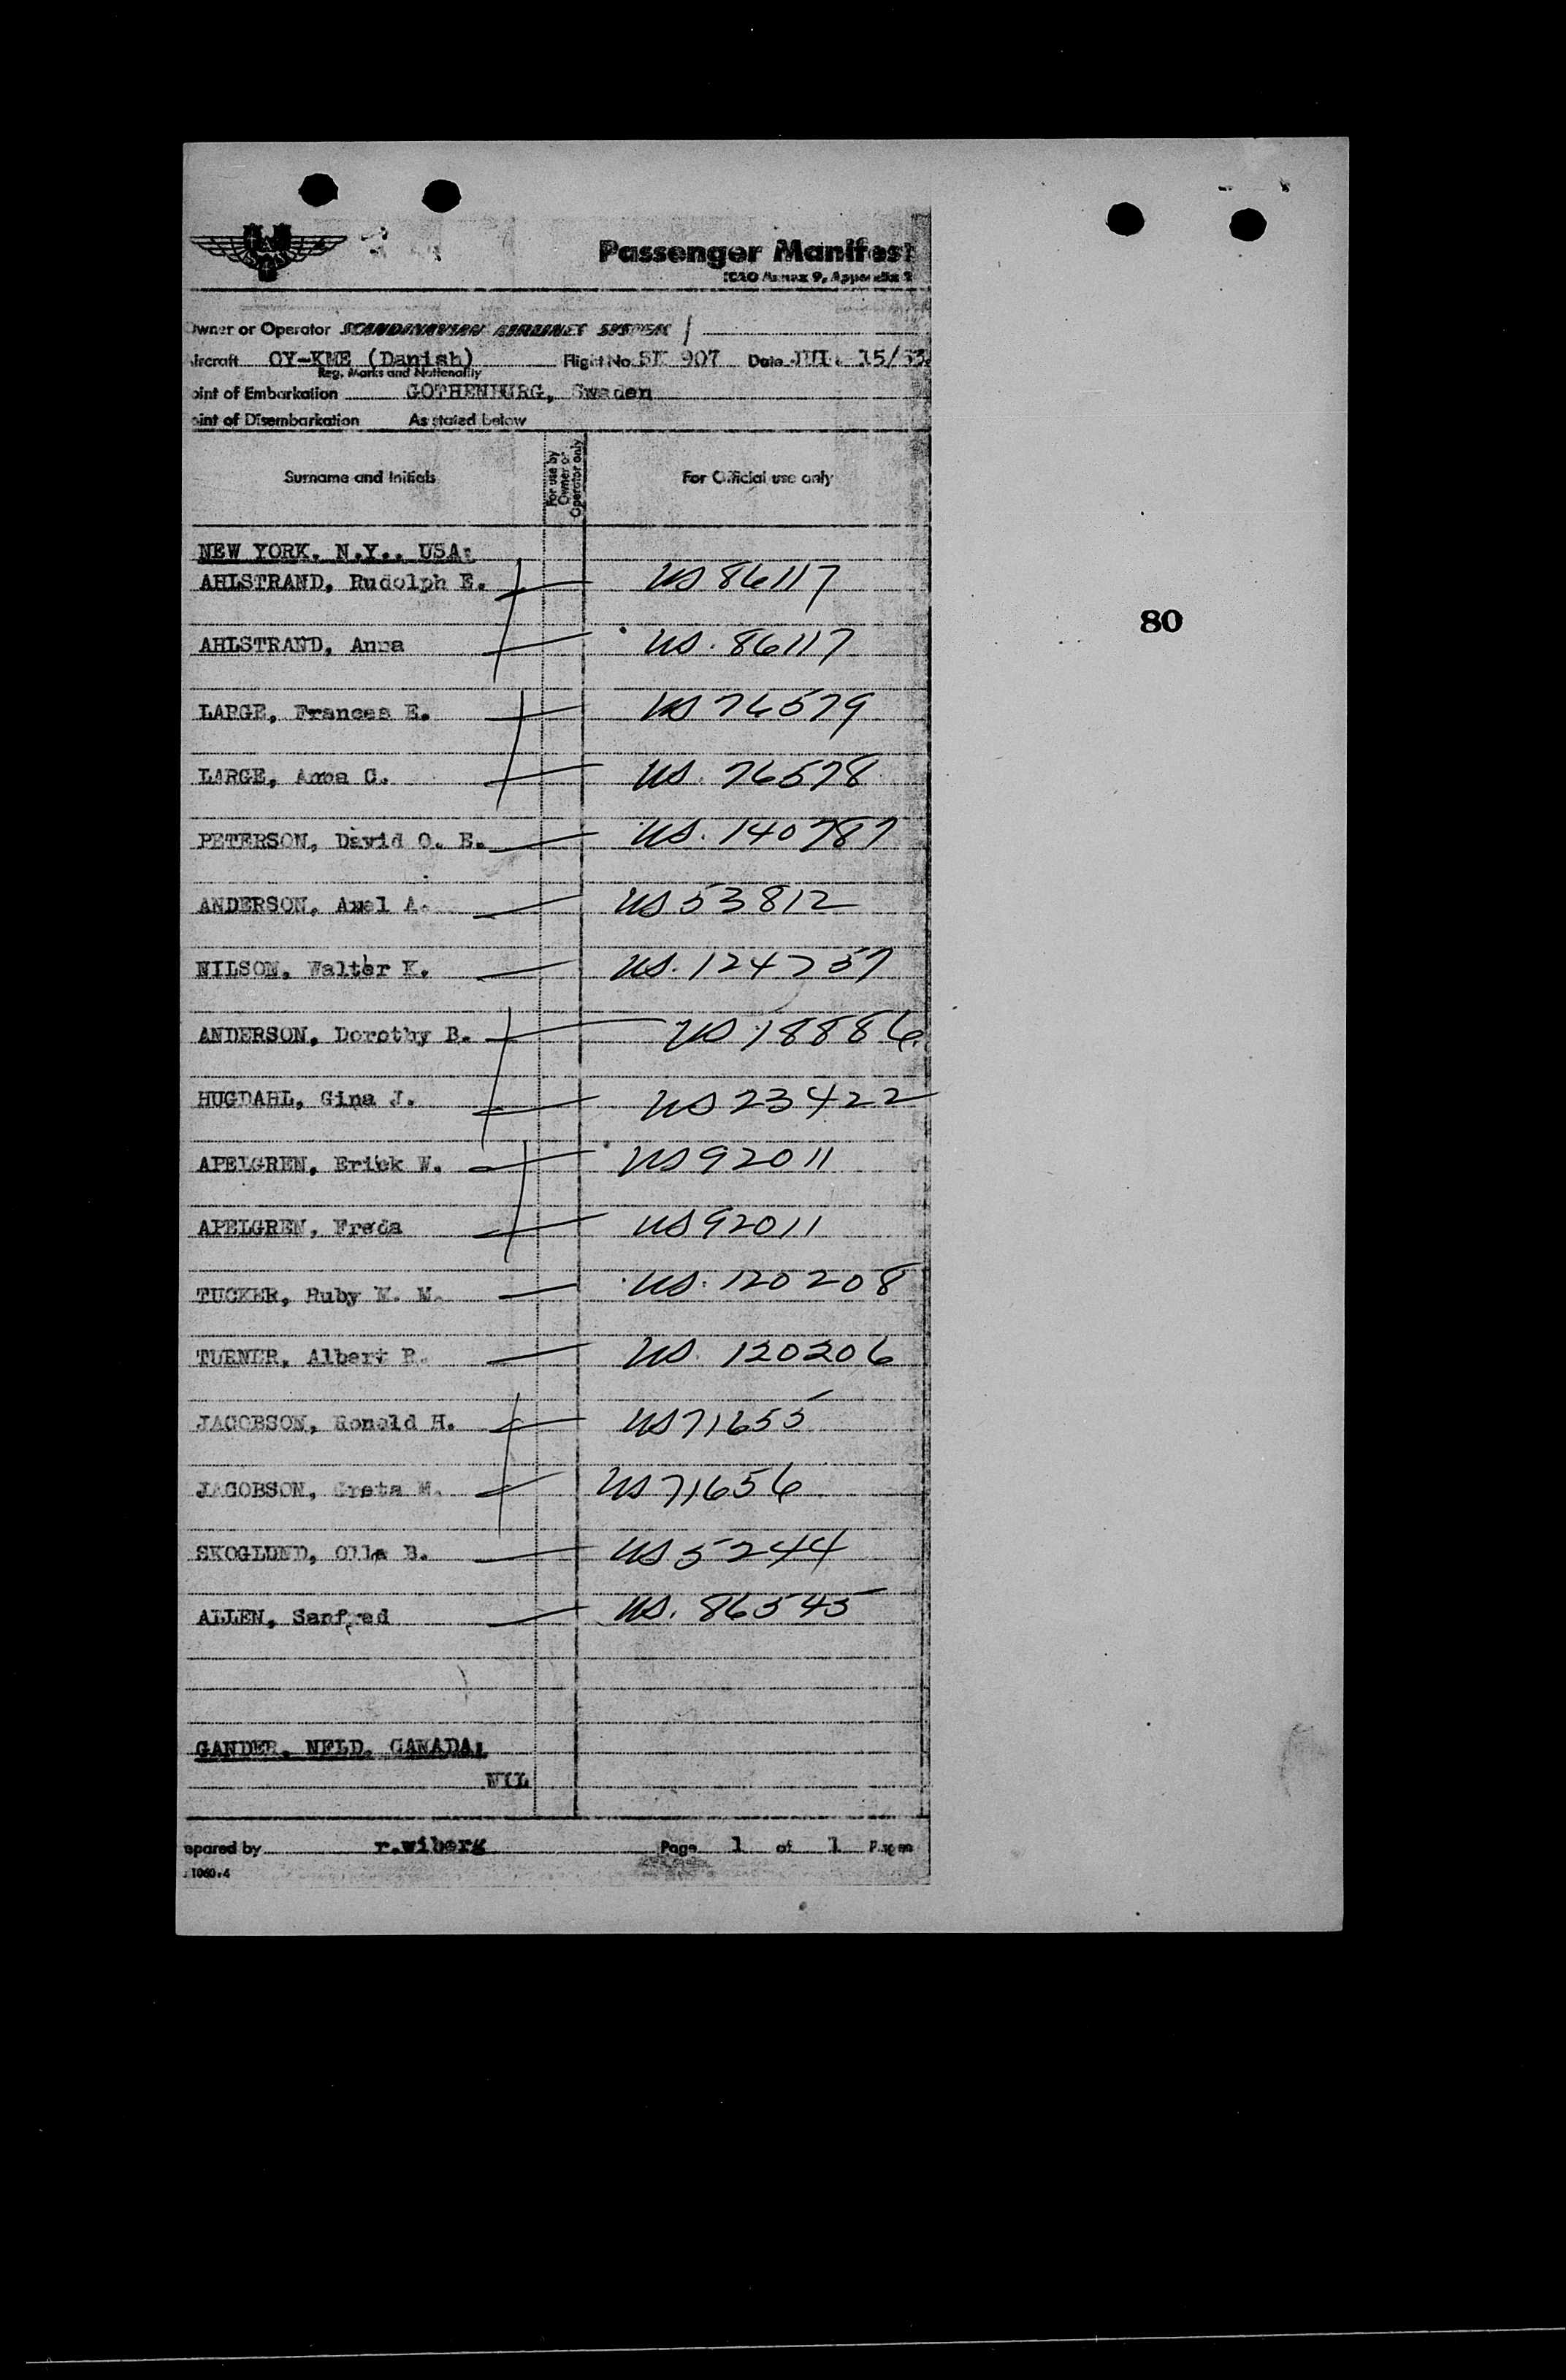 Passenger Manifest
ICAO Annex 9, Appendix 3
Owner or Operator SCANDINAVIAN AIRLINES SYSTEM /
ircraft OY-KME (Danish) Flight No. SK 907 Date JUL. 15/53.
Reg. Marks and Nationality
oint of Embarkation GOTHENBURG, Sweden
oint of Disembarkation As stated below
Surname and Initials For use by Owner or Operator only For Official use only
NEW YORK. N.Y., USA:
AHLSTRAND, Rudolph E. US 86117
80
AHLSTRAND, Anna US. 86117
LARGE, Frances E. US 76579
LARGE, Anna C. US. 76578
PETERSON, David O. E. US. 140787
ANDERSON, Axel A. US 53812
NILSON, Walter K. US. 124757
ANDERSON, Dorothy B. US 18886
HUGDAHL, Gina J. US 23422
APELGREN, Erick W. US 92011
APELGREN, Freda US 92011
TUCKER, Ruby M. M. US. 120208
TURNER, Albert R. US. 120206
JACOBSON, Ronald H. US 71655
JACOBSON, Greta M. US 71656
SKOGLUND, Olle B. US 5244
ALLEN, Sanfred US. 86545
GANDER. NFLD. CANADA:
NIL
epared by r.wiberg Page 1 of 1 Pages
1060.4